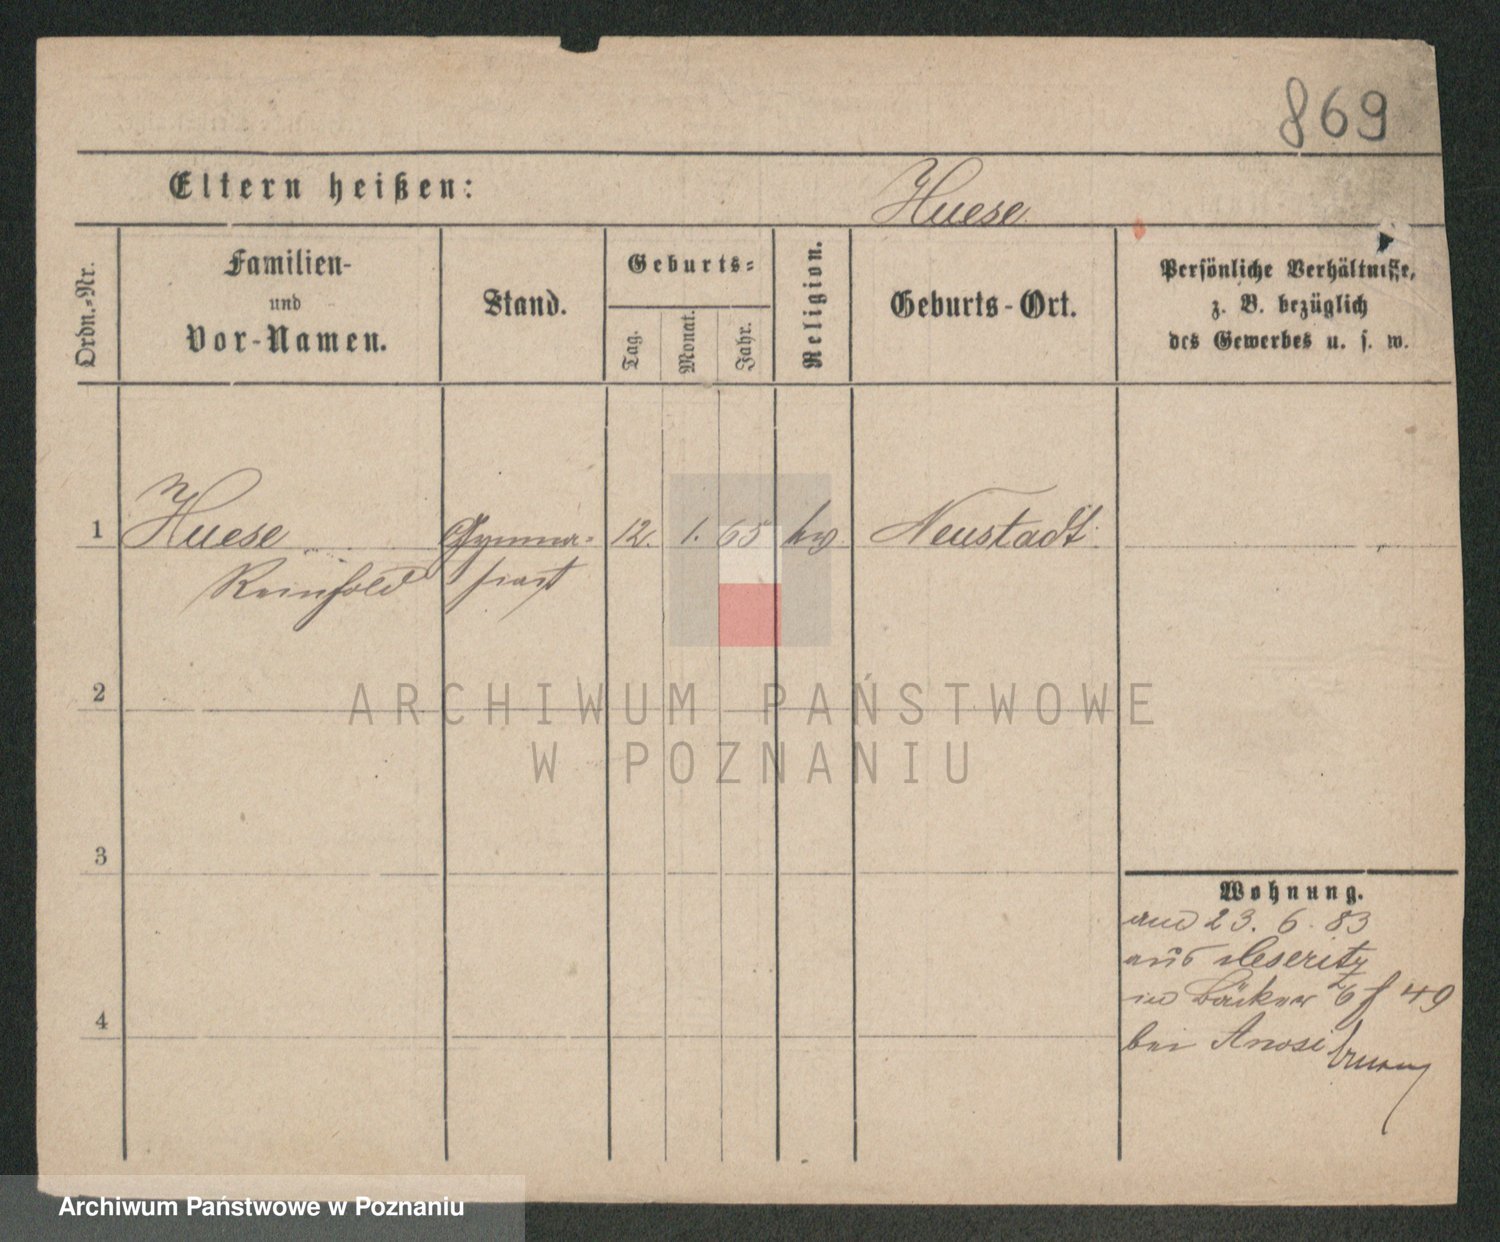 869
Eltern heißen:
Huese
Ordn.-Nr.
Familien-
und
Vor-Namen.
Stand.
Geburts-
Tag.
Monat.
Jahr.
Religion.
Geburts-Ort.
Persönliche Verhältnisse,
z. B. bezüglich
des Gewerbes u. s. w.
1 Huese Gymna- 12. 1. 65 Neustadt
Reinhold siast
2
ARCHIWUM PAŃSTWOWE
W POZNANIU
3
4
Wohnung.
23. 6. 83
aus Meseritz
in Bäcker 49
bei
Archiwum Państwowe w Poznaniu